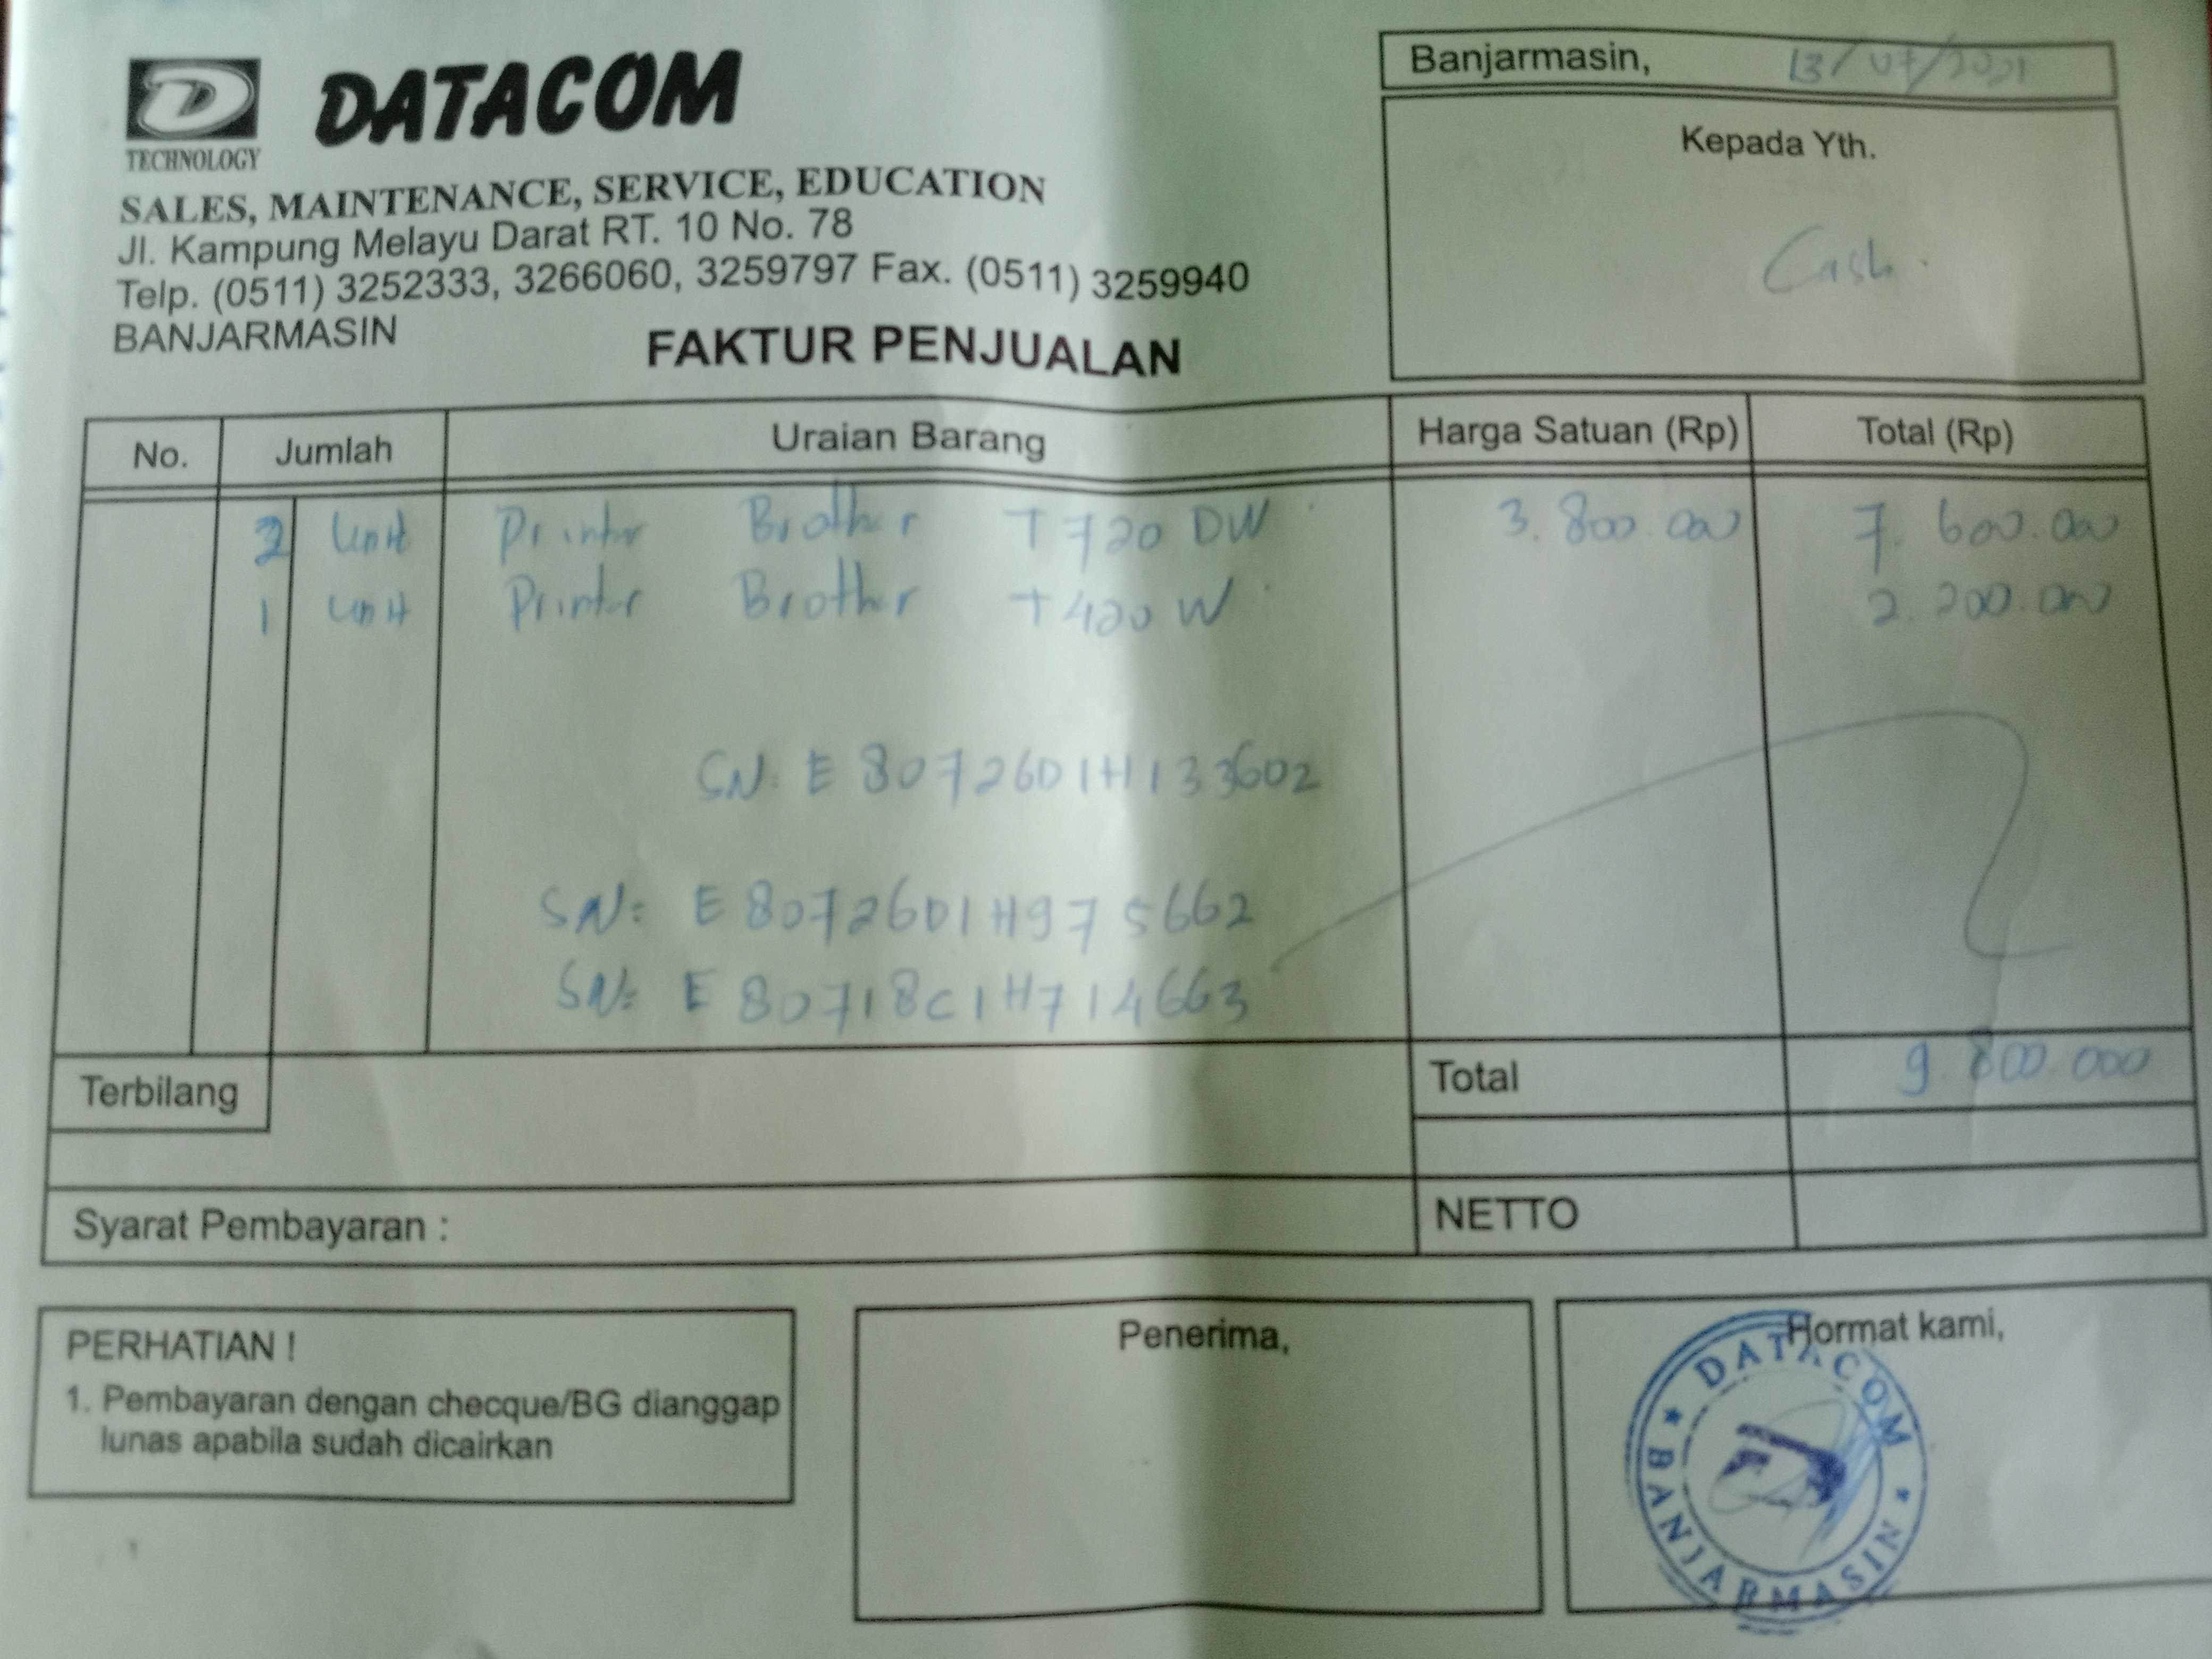 DATACOM
TECHNOLOGY
SALES, MAINTENANCE, SERVICE, EDUCATION
Jl. Kampung Melayu Darat RT. 10 No. 78
Telp. (0511) 3252333, 3266060, 3259797 Fax. (0511) 3259940
BANJARMASIN
FAKTUR PENJUALAN
Banjarmasin, 13/07/2021
Kepada Yth.
Cash.
No. Jumlah Uraian Barang Harga Satuan (Rp) Total (Rp)
2 Unit Printer Brother T720 DW 3.800.000 7.600.000
1 Unit Printer Brother T420 W 2.200.000
SN: E 80726D1H133602
SN: E 80726D1H975662
SN: E 80718C1H714663
Terbilang
Total 9.800.000
Syarat Pembayaran :
NETTO
PERHATIAN !
1. Pembayaran dengan checque/BG dianggap
lunas apabila sudah dicairkan
Penerima,
Hormat kami,
DATACOM
★ BANJARMASIN ★